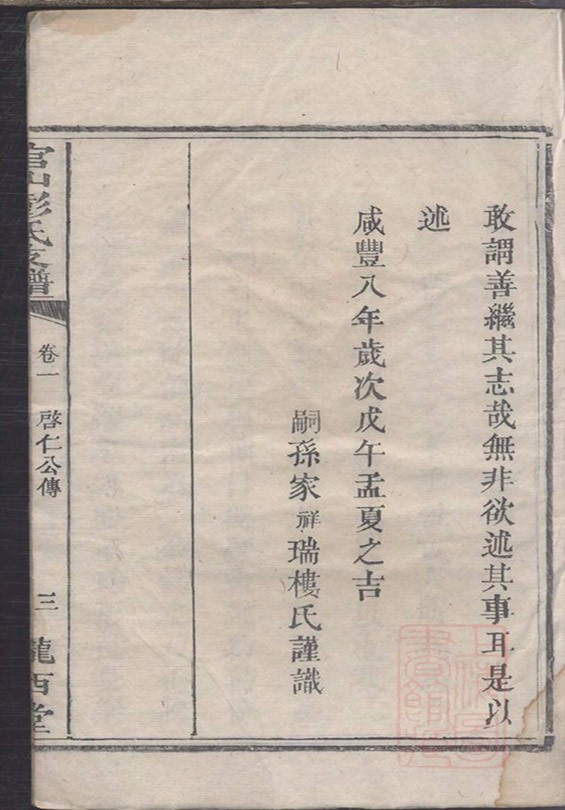 敢謂善繼其志哉無非欲述其事耳是以
述
咸豐八年歲次戊午孟夏之吉
嗣孫家祥瑞樓氏謹識
官山彭氏支譜
卷一
啓仁公傳
三
隴西堂